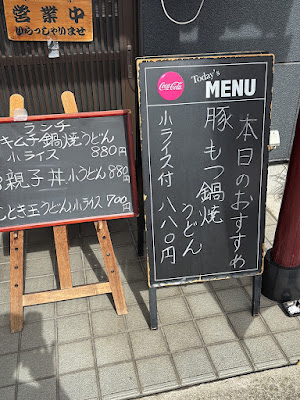 営業中
いらっしゃいませ
ランチ
キムチ鍋焼うどん
小ライス 880円
親子丼.小うどん 88
とき玉うどん.小ライス 700円
Coca-Cola
Today's
MENU
本日のおすすめ
豚もつ鍋焼うどん
小ライス付 八八〇円